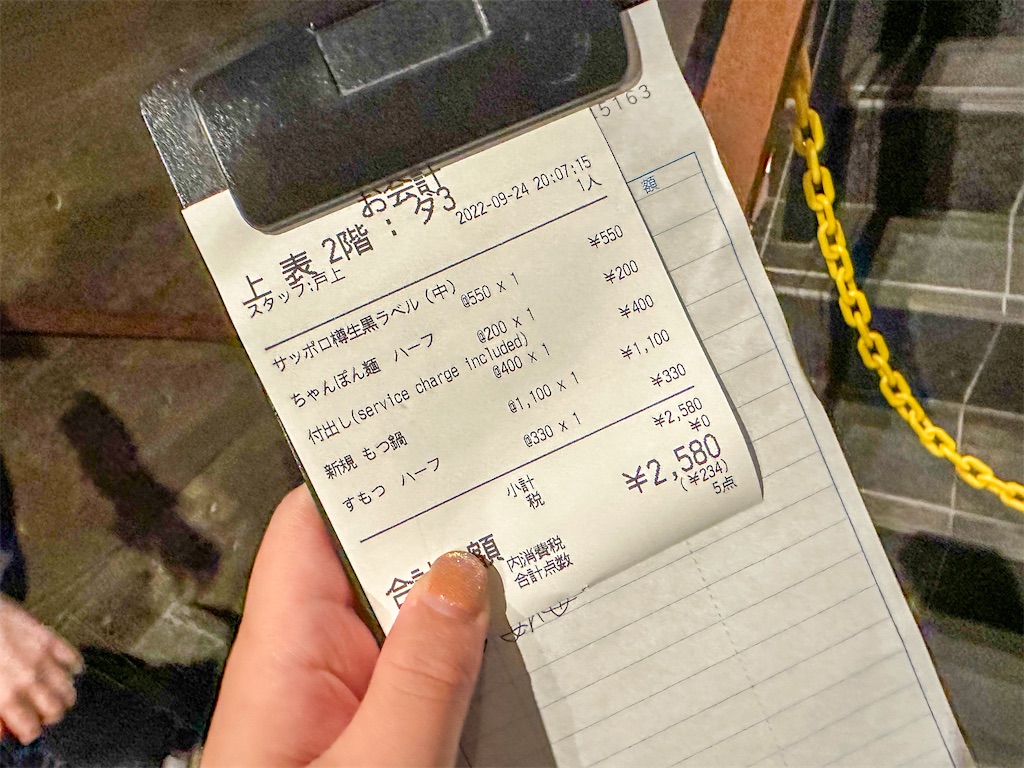 5163
額
お会計
上 表 2階 : タ3
2022-09-24 20:07:15
スタッフ:戸上
1人
サッポロ樽生黒ラベル(中)
@550 x 1 ¥550
ちゃんぽん麺 ハーフ
@200 x 1 ¥200
付出し(service charge included)
@400 x 1 ¥400
新規 もつ鍋
@1,100 x 1 ¥1,100
すもつ ハーフ
@330 x 1 ¥330
小計 ¥2,580
税 ¥0
合計 額 ¥2,580
内消費税 (¥234)
合計点数 5点